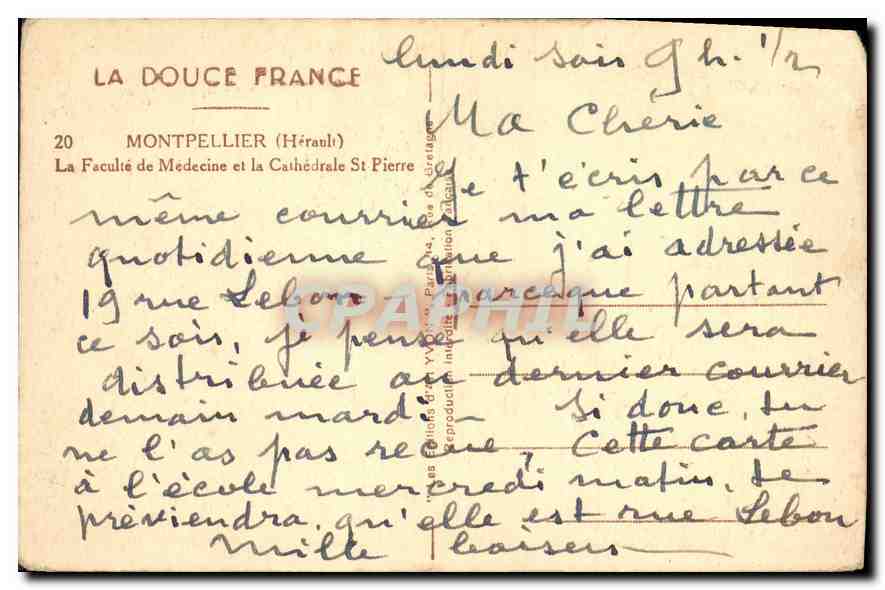 LA DOUCE FRANCE
20 MONTPELLIER (Hérault)
La Faculté de Medecine et la Cathédrale St-Pierre
lundi soir 9 h. 1/2
Ma Chérie
Je t'écris par ce
même courrier ma lettre
quotidienne que j'ai adressée
19 rue Lebon - parceque partant
ce soir, je pense qu'elle sera
distribuée au dernier courrier
demain mardi - Si donc, tu
ne l'as pas reçue, cette carte
à l'école mercredi matin, te
préviendra, qu'elle est rue Lebon
Mille baisers
"Les Editions d'Art YVON", Paris, 14, rue de Bretagne
Reproduction interdite Fabrication Française
CPAPHIL